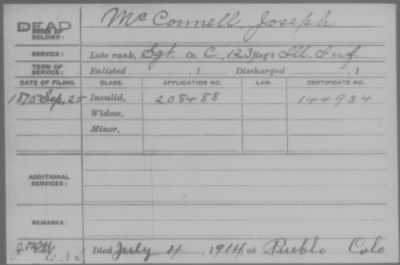 DEAD
NAME OF SOLDIER: McConnell, Joseph
SERVICE: Late rank, Sgt. Co. C, 123 Reg't Ill. Inf.
TERM OF SERVICE: Enlisted , 1 Discharged , 1
DATE OF FILING. CLASS. APPLICATION NO. LAW. CERTIFICATE NO.
1875 Sep. 25 Invalid, 208488 144934
Widow,
Minor,
ADDITIONAL SERVICES:
REMARKS:
Died July 4, 1914 at Pueblo Colo